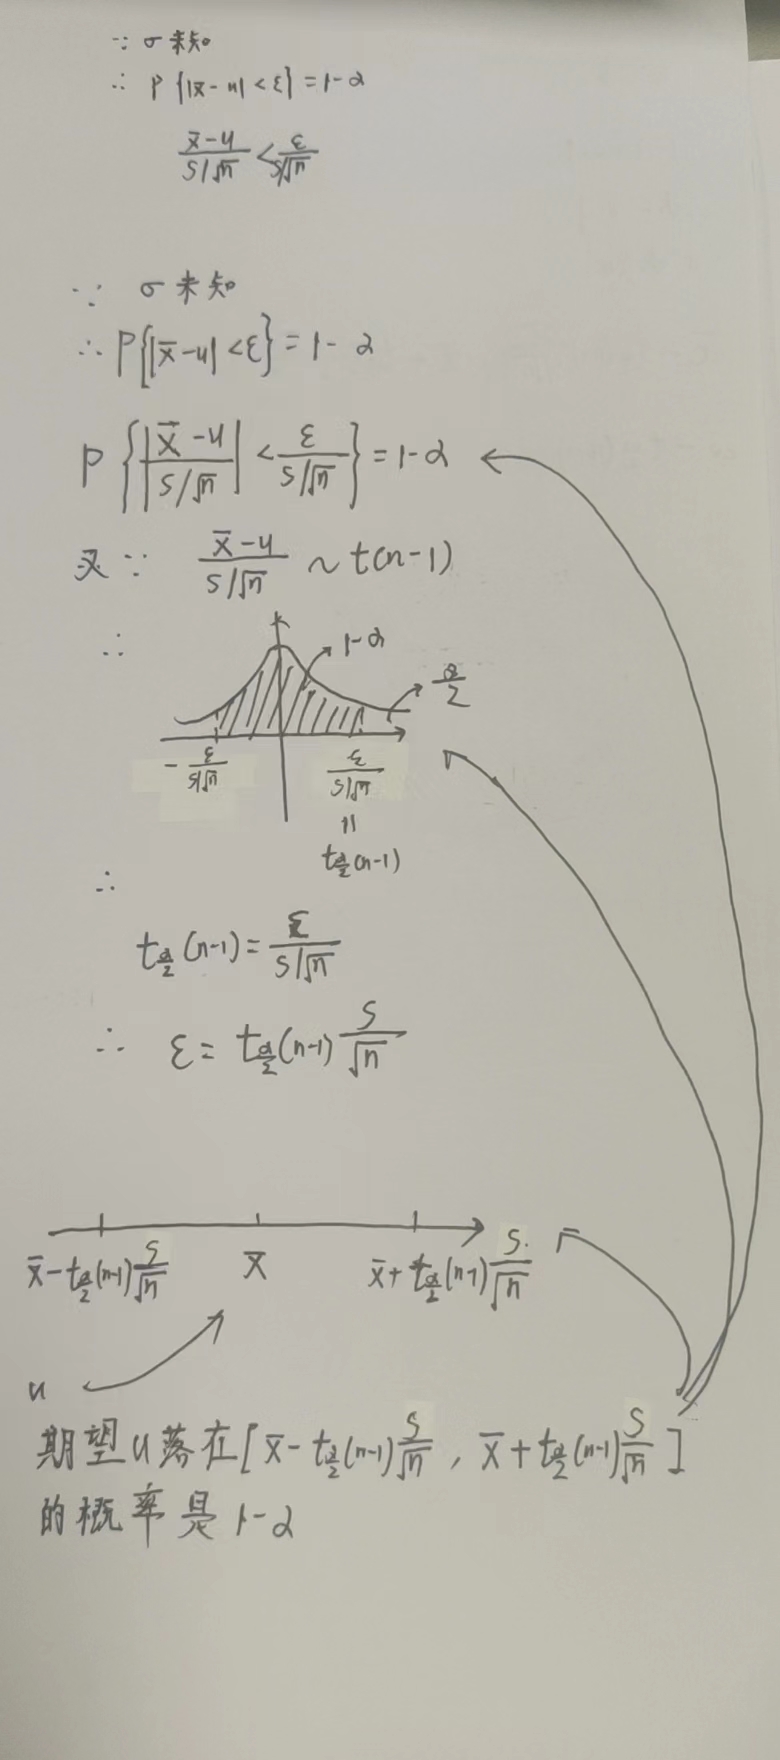 ∵ σ未知
∴ P{|x̄-u|<ε}=1-α
(x̄-u)/(S/√n) < ε/(S/√n)
∵ σ未知
∴ P{|x̄-u|<ε}=1-α
P{|(x̄-u)/(S/√n)| < ε/(S/√n)}=1-α
又∵ (x̄-u)/(S/√n) ~ t(n-1)
∴
1-α
α/2
-ε/(S/√n)
ε/(S/√n)
=
t_{α/2}(n-1)
∴
t_{α/2}(n-1)=ε/(S/√n)
∴ ε=t_{α/2}(n-1) S/√n
x̄-t_{α/2}(n-1) S/√n x̄ x̄+t_{α/2}(n-1) S/√n
u
期望u落在[x̄-t_{α/2}(n-1) S/√n, x̄+t_{α/2}(n-1) S/√n]
的概率是1-α